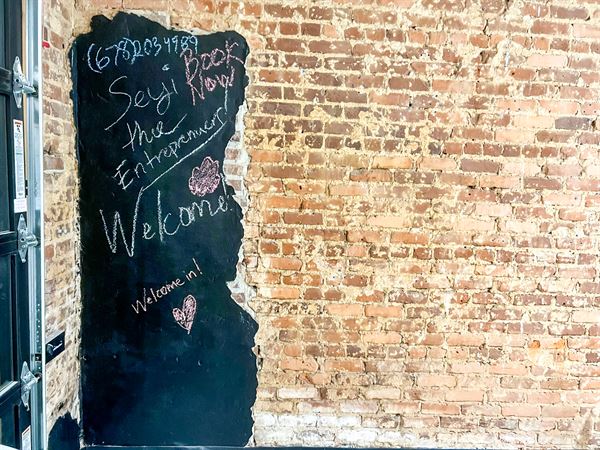 (678)2034989
Book
Now
Seyi
the
Entreprenuer
Welcome!
Welcome in!